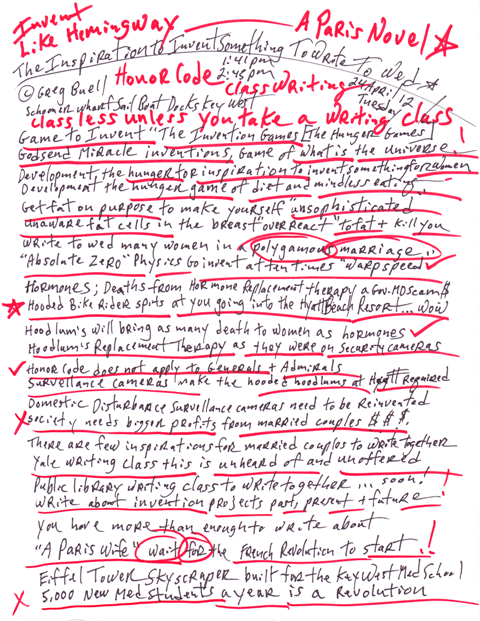 Invent
Like Hemingway A Paris Novel
The Inspiration to Invent Something To Wrote To Wed
© Greg Buell Honor Code 1:41pm
2:45pm class writing 24 April 12
Tuesday
Schooner Wharf Sail Boat Docks Key West
class less unless you take a writing class
Game to Invent "The Invention Games [The Hunger Games]
Godsend Miracle inventions, Game of what is the universe!
Development, the hunger for inspiration to invent something for women
Development the hunger game of diet and mindless eating..
Get fat on purpose to make yourself "unsophisticated
unaware fat cells in the breast over react" to fat + kill you
write to wed many women in a polygamous marriage..
"Absolute Zero" Physics Go invent at ten times "warp speed
Hormones; Deaths from Hormone Replacement therapy a Gov. MD scam $
Hooded Bike Rider spits at you going into the Hyatt Beach Resort... wow
Hoodlum's will bring as many death to women as hormones
Hoodlum's Replacement Therapy as they were on Security cameras
Honor Code does not apply to Generals + Admirals
Survellance cameras make the hooded hoodlums at Hyatt required
Domestic Disturbance Survellance cameras need to be Reinvented
society needs bigger profits from married couples $ $ $.
There are few inspirations for married couples to write together
Yale writing class this is unheard of and unoffered
Public library writing class to write together... soon!
write about invention projects past, present + future!
you have more than enough to write about
"A Paris Wife" wait for the French Revolution to start!
Eiffel Tower Skyscraper built for the Key West Med School
5,000 New Med Students a year is a Revolution